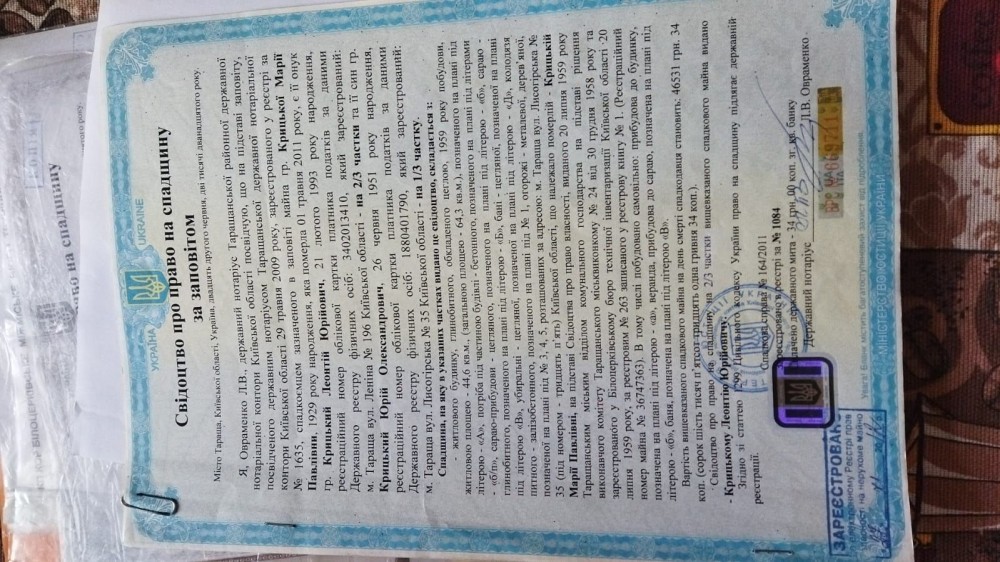 УКРАЇНА
UKRAINE
Свідоцтво про право на спадщину
за заповітом
Місто Тараща, Київської області, Україна, двадцять другого червня, дві тисячі дванадцятого року.
Я, Овраменко Л.В., державний нотаріус Таращанської районної державної
нотаріальної контори Київської області посвідчую, що на підставі заповіту,
посвідченого державним нотаріусом Таращанської державної нотаріальної
контори Київської області 29 травня 2009 року, зареєстрованого у реєстрі за
№ 1635, спадкоємцем зазначеного в заповіті майна гр. Крицької Марії
Павлівни, 1929 року народження, яка померла 01 травня 2011 року, є її онук
гр. Крицький Леонтій Юрійович, 21 лютого 1993 року народження,
реєстраційний номер облікової картки платника податків за даними
Державного реєстру фізичних осіб: 3402013410, який зареєстрований:
м. Тараща вул. Леніна № 196 Київської області - на 2/3 частки та її син гр.
Крицький Юрій Олександрович, 26 червня 1951 року народження,
реєстраційний номер облікової картки платника податків за даними
Державного реєстру фізичних осіб: 1880401790, який зареєстрований:
м. Тараща вул. Лисогірська № 35 Київської області - на 1/3 частку.
Спадщина, на яку в указаних частках видано це свідоцтво, складається з:
- житлового будинку, глинобитного, обкладеного цеглою, 1959 року побудови,
житловою площею - 44,6 кв.м. (загальною площею - 64,3 кв.м.), позначеного на плані під
літерою - «А», погріба під частиною будівлі - бетонного, позначеного на плані під літерами
- «бп», сараю-прибудови - цегляного, позначеного на плані під літерою - «б», сараю -
глинобитного, позначеного на плані під літерою - «Б», бані - цегляної, позначеної на плані
під літерою «В», убиральні - цегляної, позначеної на плані під літерою - «Д», колодязя
питного - залізобетонного, позначеного на плані під № 1, огорожі - металевої, дерев'яної,
позначеної на плані під № 3, 4, 5, розташованих за адресою: м. Тараща вул. Лисогірська №
35 (під номером - тридцять п'ять) Київської області, що належало померлій - Крицькій
Марії Павлівні, на підставі Свідоцтва про право власності, виданого 20 липня 1959 року
Таращанським міським відділом комунального господарства на підставі рішення
виконавчого комітету Таращанського міськвиконкому № 24 від 30 грудня 1958 року та
зареєстрованого у Білоцерківському бюро технічної інвентаризації Київської області 20
липня 1959 року, за реєстровим № 263 записаного у реєстрову книгу № 1. (Реєстраційний
номер майна № 36747363). В тому числі добудовано самовільно: прибудова до будинку,
позначена на плані під літерою - «а», веранда, прибудова до сараю, позначена на плані під
літерою - «б», баня, позначена на плані під літерою «В».
Вартість вищевказаного спадкового майна на день смерті спадкодавця становить: 46531 грн. 34
коп. (сорок шість тисяч п'ятсот тридцять одна гривня 34 коп.).
Свідоцтво про право на спадщину на 2/3 частки вищевказаного спадкового майна видано
- Крицькому Леонтію Юрійовичу.
Згідно зі статтею 1299 Цивільного кодексу України право на спадщину підлягає державній
реєстрації.
Спадкова справа № 164/2011
Зареєстровано в реєстрі за № 1084
Державний нотаріус
Л.В. Овраменко
ЗАРЕЄСТРОВАНО